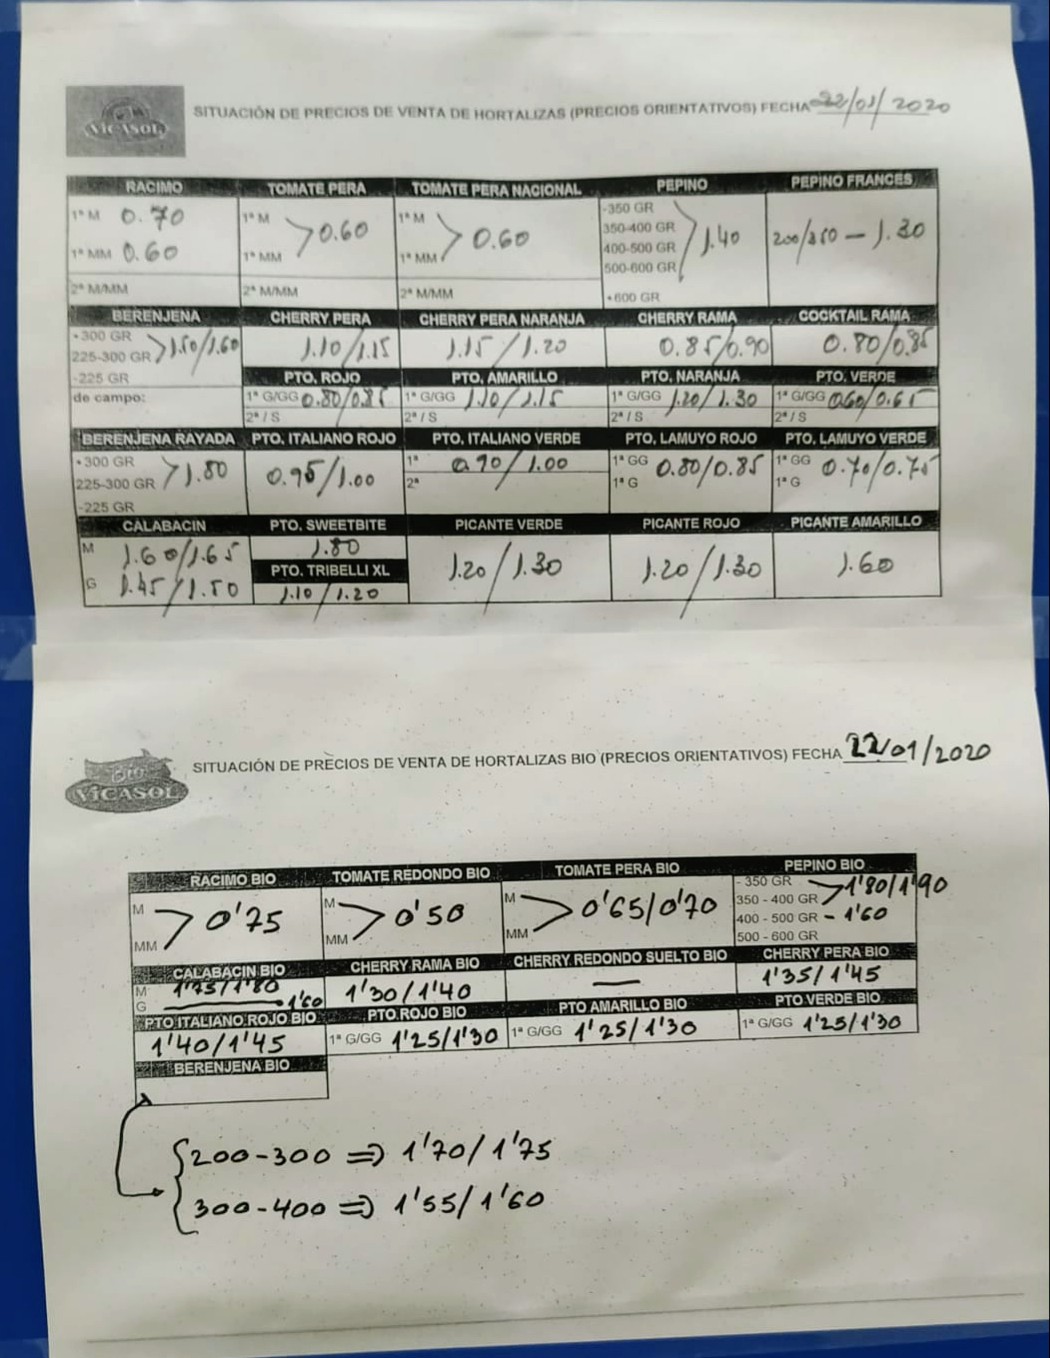 VICASOL SITUACIÓN DE PRECIOS DE VENTA DE HORTALIZAS (PRECIOS ORIENTATIVOS) FECHA 22/01/2020
RACIMO TOMATE PERA TOMATE PERA NACIONAL PEPINO PEPINO FRANCES
1ª M 0.70
1ª MM 0.60
2ª M/MM
1ª M
1ª MM > 0.60
2ª M/MM
1ª M
1ª MM > 0.60
2ª M/MM
-350 GR
350-400 GR
400-500 GR
500-600 GR > 1.40
+600 GR
200/350 — 1.30
BERENJENA CHERRY PERA CHERRY PERA NARANJA CHERRY RAMA COCKTAIL RAMA
+300 GR
225-300 GR > 1.50/1.60
-225 GR
de campo:
1.10/1.15 1.15/1.20 0.85/0.90 0.80/0.85
PTO. ROJO PTO. AMARILLO PTO. NARANJA PTO. VERDE
1ª G/GG 0.80/0.85 1ª G/GG 1.10/1.15 1ª G/GG 1.20/1.30 1ª G/GG 0.60/0.65
2ª / S 2ª / S 2ª / S 2ª / S
BERENJENA RAYADA PTO. ITALIANO ROJO PTO. ITALIANO VERDE PTO. LAMUYO ROJO PTO. LAMUYO VERDE
+300 GR
225-300 GR > 1.80
-225 GR
0.95/1.00
1ª 0.90/1.00
2ª
1ª GG 0.80/0.85
1ª G
1ª GG 0.70/0.75
1ª G
CALABACIN PTO. SWEETBITE PICANTE VERDE PICANTE ROJO PICANTE AMARILLO
M 1.60/1.65
G 1.45/1.50
1.80
PTO. TRIBELLI XL
1.10/1.20
1.20/1.30 1.20/1.30 1.60
BIO
VICASOL SITUACIÓN DE PRECIOS DE VENTA DE HORTALIZAS BIO (PRECIOS ORIENTATIVOS) FECHA 22/01/2020
RACIMO BIO TOMATE REDONDO BIO TOMATE PERA BIO PEPINO BIO
M
MM > 0'75
M
MM > 0'50
M
MM > 0'65/0'70
- 350 GR
350 - 400 GR > 1'80/1'90
400 - 500 GR - 1'60
500 - 600 GR
CALABACIN BIO CHERRY RAMA BIO CHERRY REDONDO SUELTO BIO CHERRY PERA BIO
M 1'75/1'80
G — 1'60
1'30/1'40 — 1'35/1'45
PTO ITALIANO ROJO BIO PTO.ROJO BIO PTO AMARILLO BIO PTO VERDE BIO
1'40/1'45 1ª G/GG 1'25/1'30 1ª G/GG 1'25/1'30 1ª G/GG 1'25/1'30
BERENJENA BIO
200-300 ⇒ 1'70/1'75
300-400 ⇒ 1'55/1'60